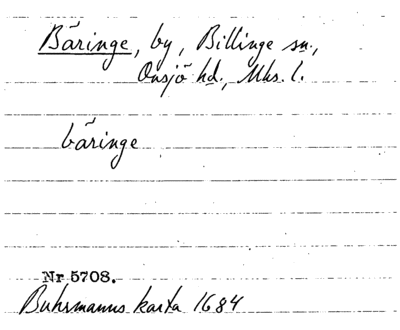 Bäringe, by, Billinge sn.,
Onsjö hd., Mhs. l.
bäringe
Nr 5708.
Buhrmanns karta 1684